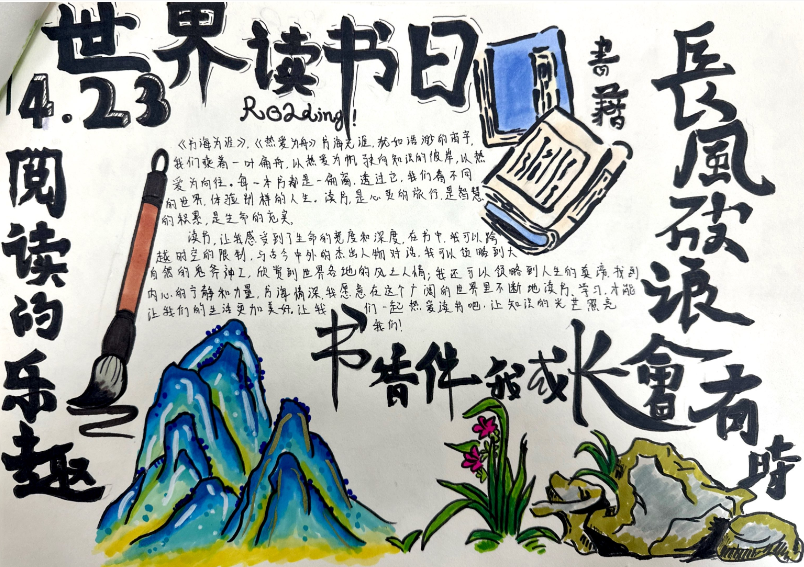 世界读书日
4.23
Reading!
书籍
長風破浪會有時
阅读的乐趣
《书海为涯》,《热爱为舟》书海无涯,犹如浩渺的宇宙,
我们乘着一叶扁舟,以热爱为帆,驶向知识的彼岸,以热
爱为向往。每一本书都是一扇窗,透过它,我们看不同
的世界,体验别样的人生。读书,是心灵的旅行,是智慧
的积累,是生命的充实。
读书,让我感受到了生命的宽度和深度,在书中,我可以跨
越时空的限制,与古今中外的杰出人物对话,我可以领略到大
自然的鬼斧神工,欣赏到世界各地的风土人情;我还可以领略到人生的真谛,找到
内心的宁静和力量,书海情深,我愿意在这个广阔的世界里不断地读书,学习,才能
让我们的生活更加美好,让我们一起热爱读书吧,让知识的光芒照亮
我们!
书香伴我成长